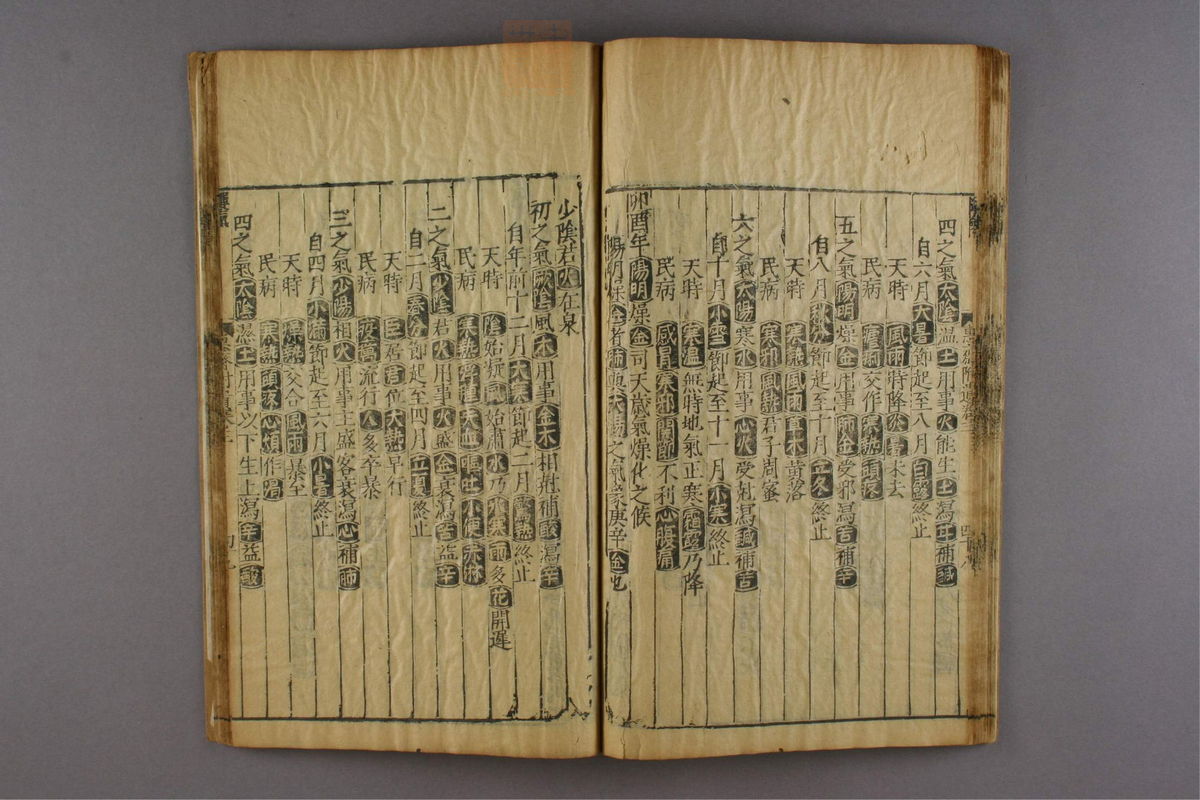 四之氣太陰濕土用事火能生土瀉甘補鹹
自六月大暑節起至八月白露終止
天時風雨時降炎暑未去
民病瘧痢交作寒熱頭疼
五之氣陽明燥金用事肺金受邪瀉苦補辛
自八月秋分節起至十月立冬終止
天時寒熱風雨草木黃落
民病寒邪風熱君子周密
六之氣太陽寒水用事心火受尅瀉鹹補苦
自十月小雪節起至十二月小寒終止
天時寒溫無時地氣正寒霜露乃降
民病感冒寒邪關節不利心腹痛
卯酉年陽明燥金司天歲氣燥化之候
陽明燥金者肺與大腸之氣象庚辛金也
少陰君火在泉
初之氣厥陰風木用事金木相尅補酸瀉辛
自年前十二月大寒節起二月驚蟄終止
天時陰始凝風始肅水乃冰寒雨多花開遲
民病寒熱浮腫失血嘔吐小便赤淋
二之氣少陰君火用事火盛金衰瀉苦益辛
自二月春分節起至四月立夏終止
天時臣居君位大熱早行
民病疫癘流行人多卒暴
三之氣少陽相火用事主盛客衰瀉心補肺
自四月小滿節起至六月小暑終止
天時燥熱交合風雨暴至
民病寒熱頭疼心煩作渴
四之氣太陰濕土用事以下生上瀉辛益鹹